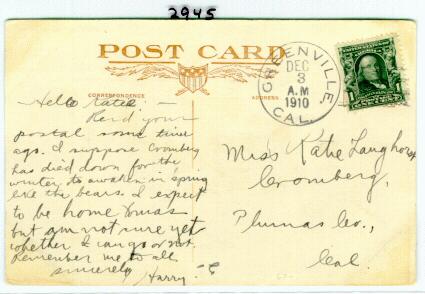 2945
POST CARD
CORRESPONDENCE
ADDRESS
GREENVILLE,
DEC
3
A.M
1910
CAL.
Hello Katie; —
Rec'd your
postal some time
ago. I suppose Cromberg
has died down for the
winter, to awaken in spring
like the bears. I expect
to be home Xmas
but am not sure yet
whether I can go or not
Remember me to all
sincerely
Harry.
Miss Katie Langhorst
Cromberg,
Plumas Co.,
Cal.